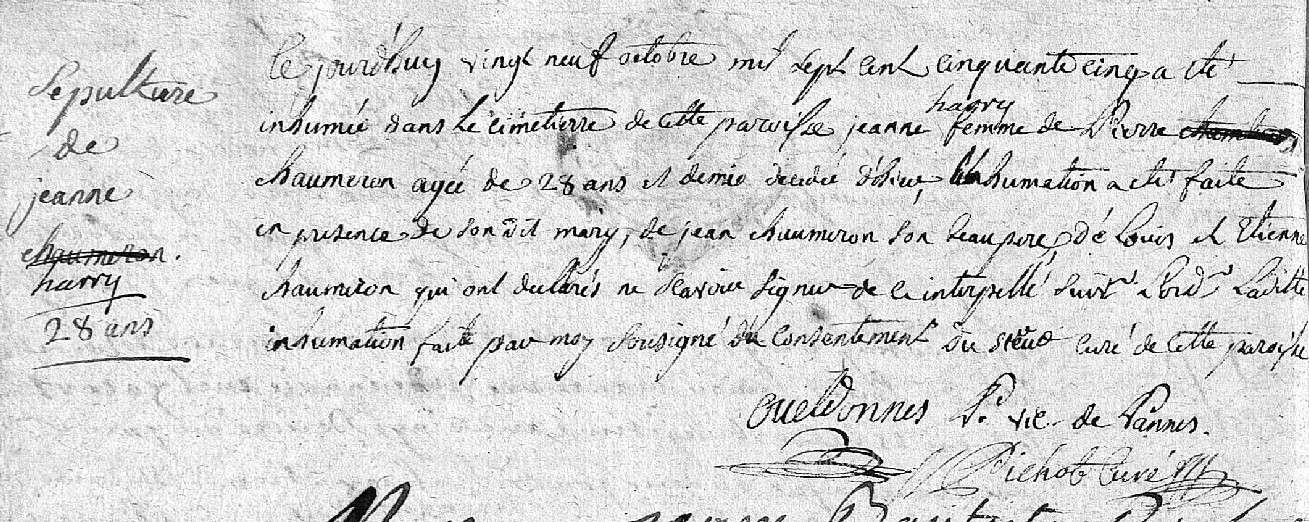 Sepulture
de
jeanne
chaumeron.
harry
28 ans
Ce jourd'huy vingt neuf octobre mil sept cent cinquante cinq a eté
inhumée dans le cimetierre de cette paroisse jeanne harry femme de Pierre
chaumeron agée de 28 ans et demie decedée d'hier, l'inhumation a eté faite
en presence de son dit mary, de jean chaumeron son beaupere, de Louis et Etienne
chaumeron qui ont declarés ne scavoir signer de ce interpellé suivt l'ord. Laditte
inhumation faite par moy sousigné du consentement du sieur curé de cette paroisse
ptre vic. de Pannes.
Pichot Curé